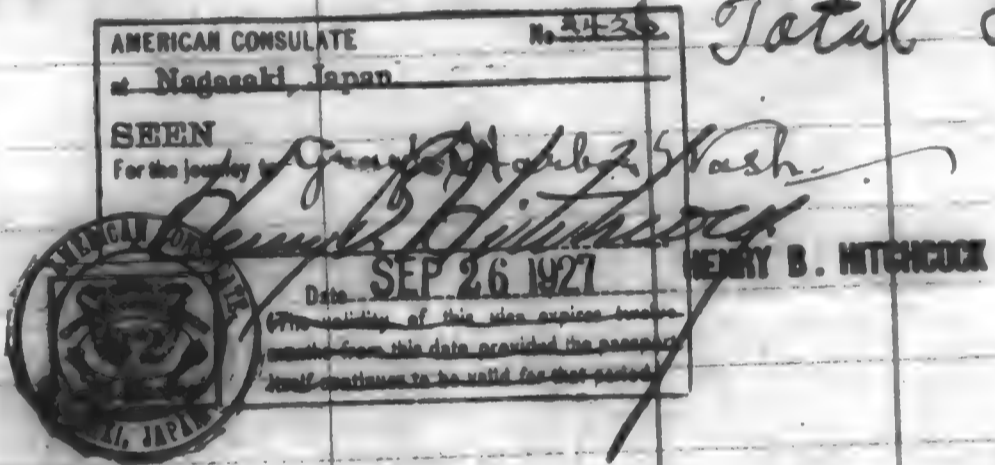 AMERICAN CONSULATE No.
Total
at Nagasaki, Japan
SEEN
For the journey to Grays Harbor Wash.
Henry B Hitchcock
HENRY B. HITCHCOCK
Date SEP 26 1927
(The validity of this visa expires twelve
months from this date provided the passport
itself continues to be valid for that period)
AMERICAN CONSULATE
JAPAN